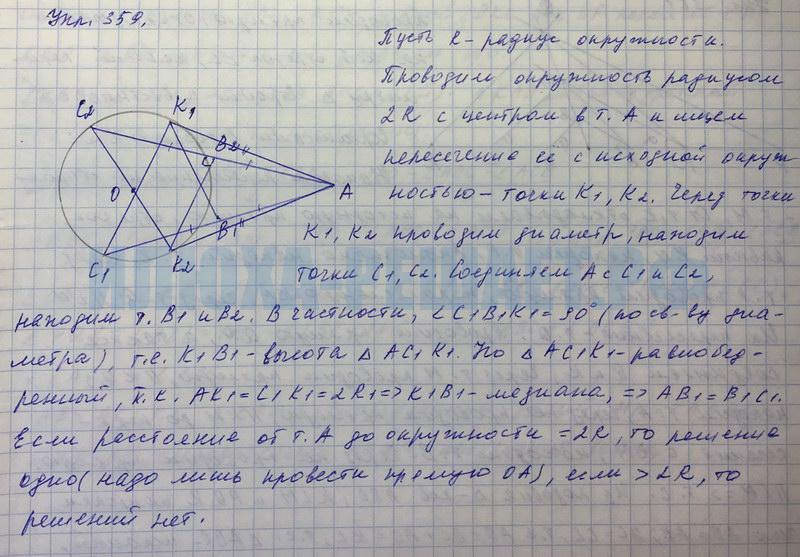 Упр. 359.
Пусть R - радиус окружности.
Проводим окружность радиусом
2R с центром в т. А и ищем
пересечение её с исходной окруж-
ностью - точки K1, K2. Через точки
K1, K2 проводим диаметр, находим
точки C1, C2. Соединяем А с C1 и C2,
находим т. B1 и B2. В частности, ∠C1B1K1=90° (по св-ву диа-
метра), т.е. K1B1 - высота △ AC1K1. Но △ AC1K1 - равнобед-
ренный, т.к. AK1=C1K1=2R1=>K1B1 - медиана, => AB1=B1C1.
Если расстояние от т. А до окружности =2R, то решение
одно (надо лишь провести прямую OA), если >2R, то
решений нет.
C2
K1
B2
O
A
B1
C1
K2